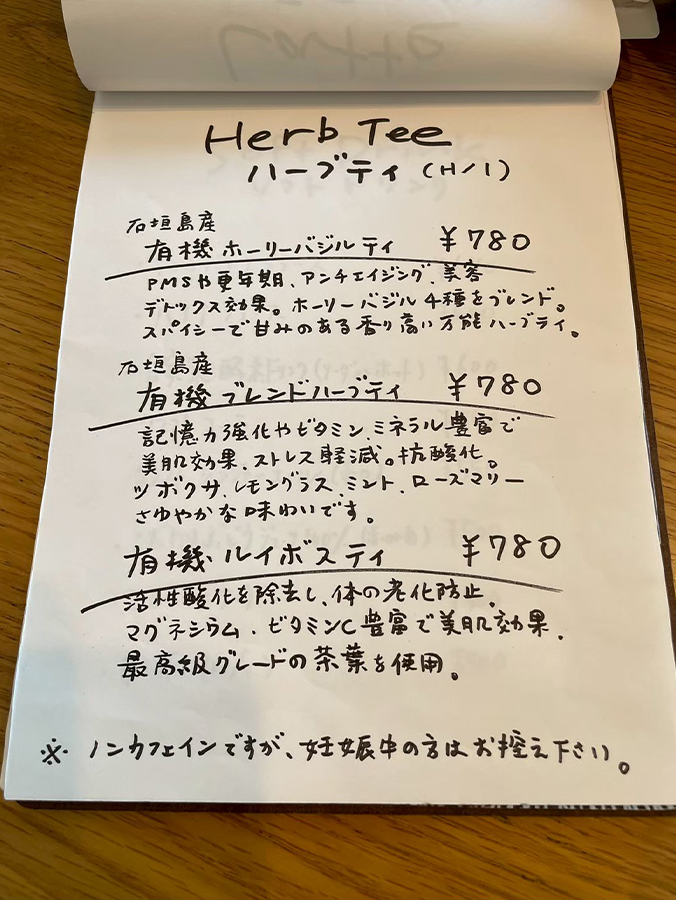 Herb Tee
ハーブティ (H/I)
石垣島産
有機 ホーリーバジルティ ¥780
PMSや更年期、アンチエイジング、美容
デトックス効果。ホーリーバジル4種をブレンド。
スパイシーで甘みのある香り高い万能ハーブティ。
石垣島産
有機 ブレンドハーブティ ¥780
記憶力強化やビタミン、ミネラル豊富で
美肌効果、ストレス軽減。抗酸化。
ツボクサ、レモングラス、ミント、ローズマリー
さゆやかな味わいです。
有機 ルイボスティ ¥780
活性酸化を除去し、体の老化防止。
マグネシウム、ビタミンC豊富で美肌効果。
最高級グレードの茶葉を使用。
※ ノンカフェインですが、妊娠中の方はお控え下さい。